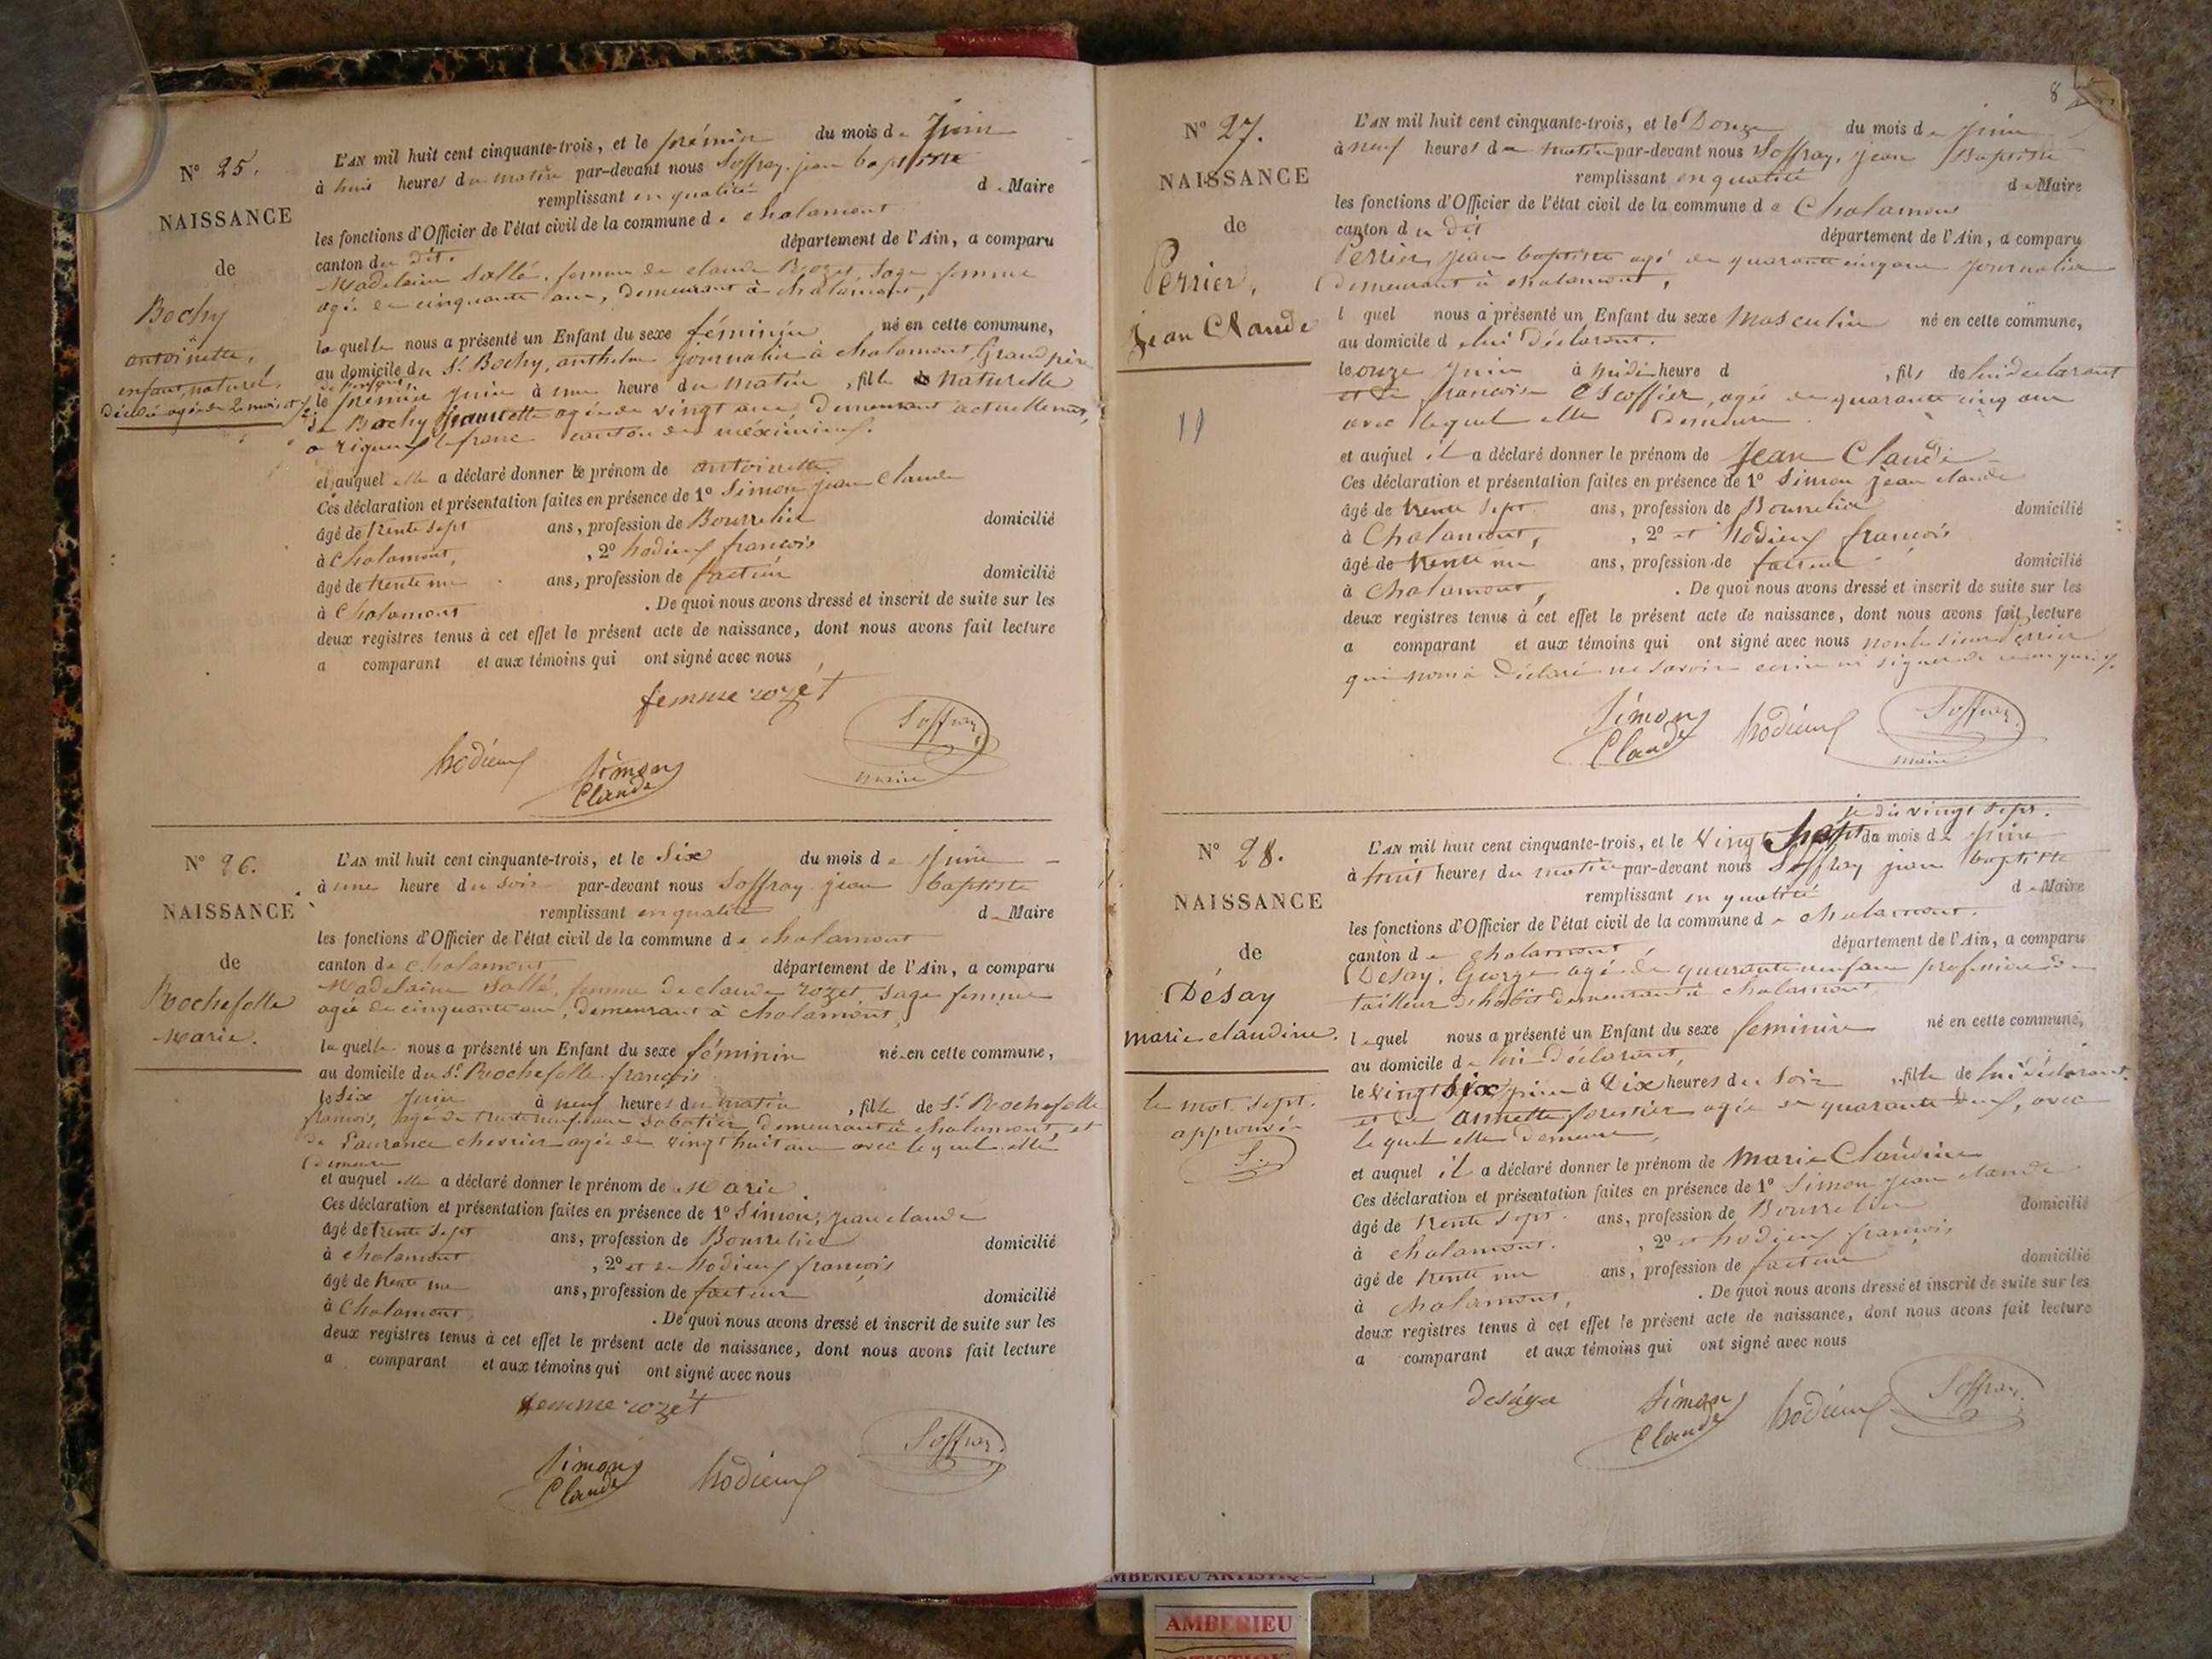 N° 25.
NAISSANCE
de
Bochy
antoinette,
enfant naturel,
décédé agée de 2 mois et
L'AN mil huit cent cinquante-trois, et le prémier du mois de Juin
à huit heures du matin par-devant nous Soffray, jean baptiste
remplissant en qualité de Maire
les fonctions d'Officier de l'état civil de la commune de chalamont
canton du dit. département de l'Ain, a comparu
Madelaine Sallé, femme de claude Rozet, Sage femme
agée de cinquante ans, demeurant à chalamont,
laquelle nous a présenté un Enfant du sexe féminin né en cette commune,
au domicile du Sr Bochy, anthelme journalier à chalamont, Grand père
de l'enfant
le prémier juin à une heure du matin, fille naturelle
de Bochy agée de vingt ans, demeurant actuellement,
a rigneux le franc canton de méximieux.
et auquel elle a déclaré donner le prénom de antoinette.
Ces déclaration et présentation faites en présence de 1° Simon jean Claude
âgé de trente sept ans, profession de Bourrelier domicilié
à Chalamont, , 2° hodieux francois
âgé de trente un ans, profession de facteur domicilié
à Chalamont . De quoi nous avons dressé et inscrit de suite sur les
deux registres tenus à cet effet le présent acte de naissance, dont nous avons fait lecture
a comparant et aux témoins qui ont signé avec nous,
femme rozet
Soffray
hodieux Simon
Claude maire
N° 26.
NAISSANCE
de
Rochefolle
Marie.
L'AN mil huit cent cinquante-trois, et le Six du mois de Juin
à une heure du soir par-devant nous Soffray jean baptiste
remplissant en qualité de Maire
les fonctions d'Officier de l'état civil de la commune de chalamont
canton de Chalamont département de l'Ain, a comparu
Madelaine Sallé, femme de claude rozet sage femme
agée de cinquante ans, demeurant à chalamont,
laquelle nous a présenté un Enfant du sexe féminin né en cette commune,
au domicile du Sr Rochefolle françois
le Six Juin à neuf heures du matin, fille de Sr Rochefolle
francois, agé de trente neuf ans Sabotier demeurant à chalamont, et
de Laurence chevrier agée de vingt huit ans avec lequel elle
demeure
et auquel elle a déclaré donner le prénom de Marie
Ces déclaration et présentation faites en présence de 1° Simon, jean claude
âgé de trente sept ans, profession de Bourrelier domicilié
à chalamont , 2° et de hodieux françois
âgé de trente un ans, profession de facteur domicilié
à Chalamont . De quoi nous avons dressé et inscrit de suite sur les
deux registres tenus à cet effet le présent acte de naissance, dont nous avons fait lecture
a comparant et aux témoins qui ont signé avec nous
femme rozet
Soffray
Simon hodieux
Claude
8
N° 27.
NAISSANCE
de
Perrier,
Jean Claude
11
L'AN mil huit cent cinquante-trois, et le Douze du mois de juin
à neuf heures du matin par-devant nous Soffray, jean Baptiste
remplissant en qualité de Maire
les fonctions d'Officier de l'état civil de la commune de Chalamont
canton du dit département de l'Ain, a comparu
Perrier, jean baptiste agé de quarante cinq ans journalier
demeurant à chalamont,
lequel nous a présenté un Enfant du sexe Masculin né en cette commune,
au domicile de lui déclarant.
le onze juin à midi heure d , fils de lui déclarant
et de francoise Escoffier, agée de quarante cinq ans
avec lequel elle demeure.
et auquel il a déclaré donner le prénom de Jean Claude
Ces déclaration et présentation faites en présence de 1° Simon jean claude
âgé de trente sept ans, profession de Bourrelier domicilié
à Chalamont, , 2° et hodieux françois
âgé de trente un ans, profession de facteur domicilié
à chalamont, . De quoi nous avons dressé et inscrit de suite sur les
deux registres tenus à cet effet le présent acte de naissance, dont nous avons fait lecture
a comparant et aux témoins qui ont signé avec nous non le sieur Perrier
qui nous à déclaré ne savoir écrire ni signer de ce enquis.
Simon hodieux Soffray
Claude maire
N° 28.
NAISSANCE
de
Désay
marie claudine.
le mot Sept.
approuvé
S.
je dis vingt Sept.
L'AN mil huit cent cinquante-trois, et le Vingt Sept du mois de Juin
à huit heures du matin par-devant nous Soffray jean baptiste
remplissant en qualité de Maire
les fonctions d'Officier de l'état civil de la commune de chalamont.
canton de chalamont, département de l'Ain, a comparu
Désay, George agé de quarante neuf ans profession de
tailleur d'habit demeurant à chalamont,
lequel nous a présenté un Enfant du sexe feminin né en cette commune,
au domicile de lui déclarant,
le Vingt Six juin à Dix heures du Soir , fille de lui déclarant
et de annette forestier agée de quarante deux, avec
lequel elle demeure,
et auquel il a déclaré donner le prénom de Marie Claudine
Ces déclaration et présentation faites en présence de 1° Simon jean claude
âgé de trente sept ans, profession de Bourrelier domicilié
à chalamont. , 2° et hodieux françois
âgé de trente un ans, profession de facteur domicilié
à chalamont, . De quoi nous avons dressé et inscrit de suite sur les
deux registres tenus à cet effet le présent acte de naissance, dont nous avons fait lecture
a comparant et aux témoins qui ont signé avec nous
Simon hodieux Soffray
Claude
AMBERIEU ARTISTIQUE
AMBERIEU